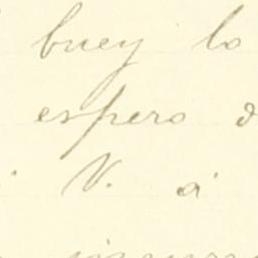 buey lo
espero d
V. á